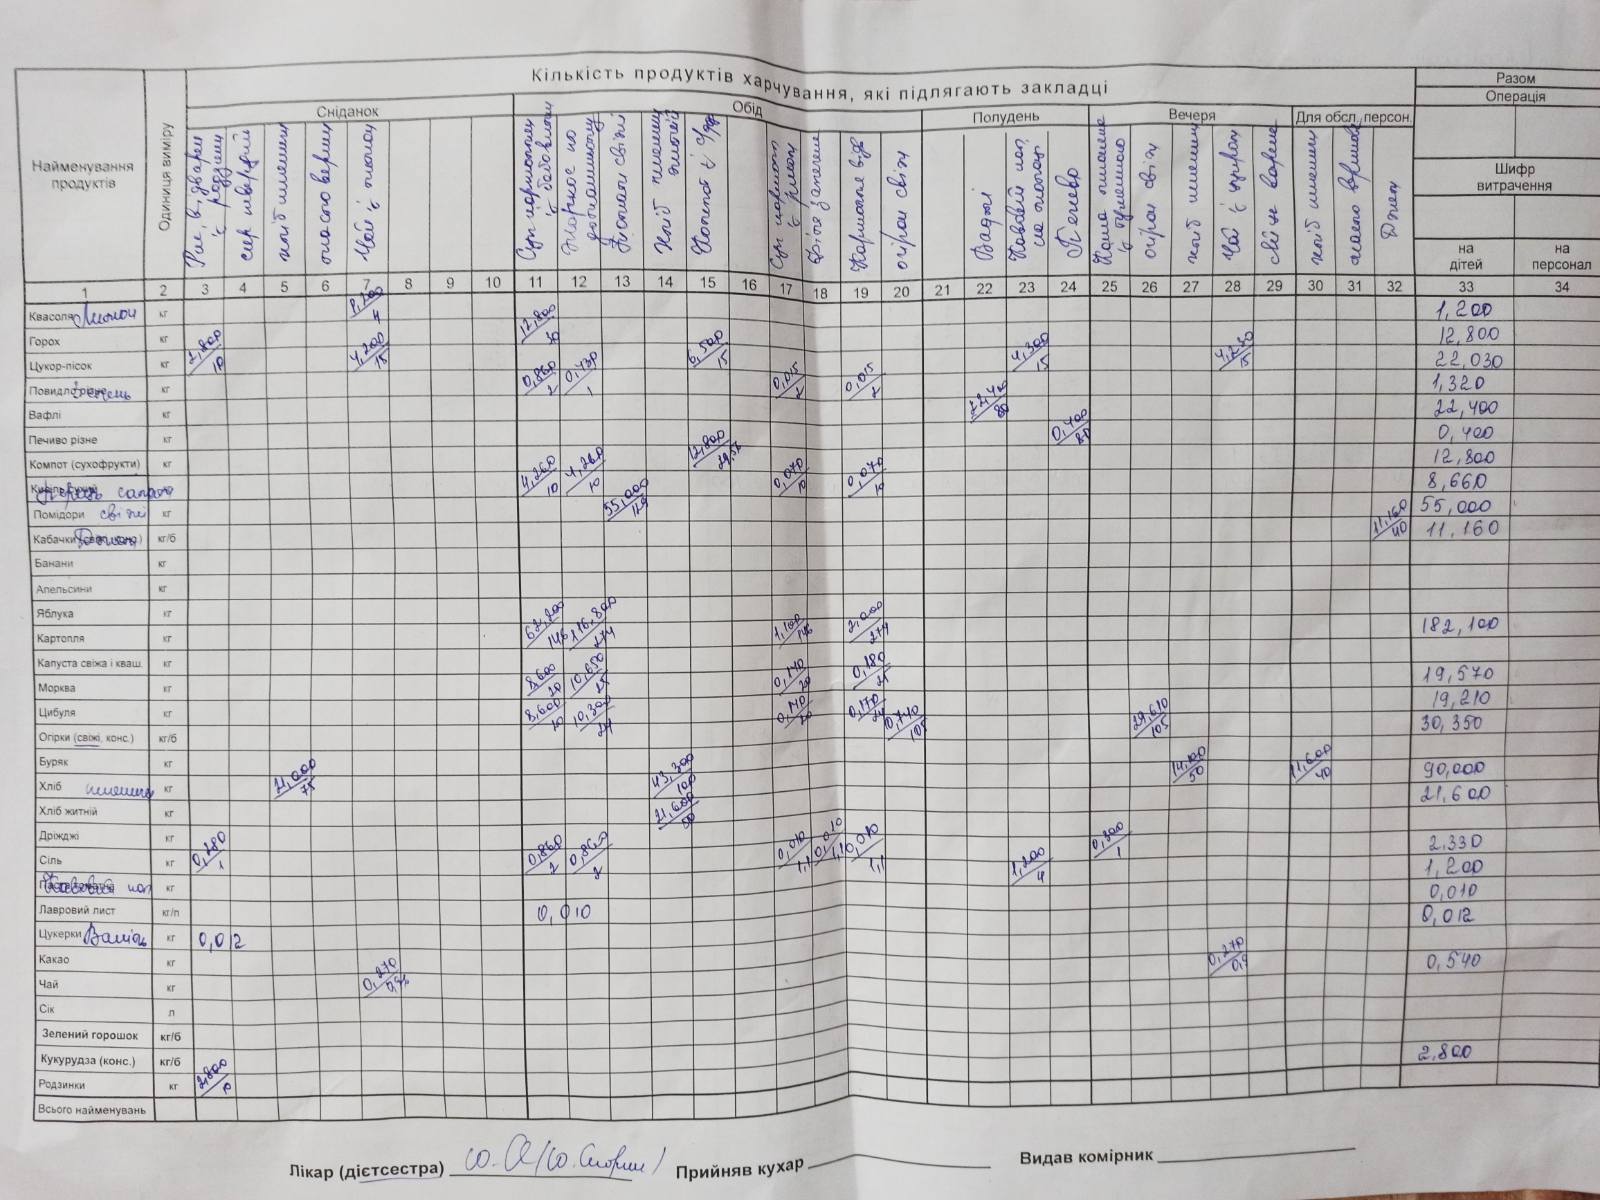 Кількість продуктів харчування, які підлягають закладці
Разом
Операція
Найменування продуктів
Одиниця виміру
Сніданок
Обід
Полудень
Вечеря
Для обсл. персон.
Шифр витрачення
на дітей
на персонал
Рис відварен з родзинк
сир твердий
хліб пшенич
масло вершк
Чай з лимон
Суп
з бобовими
Жаркоє по домашньому
Помідори свіжі
Хліб пшенич житній
Компот з с/фр
Риба запечена
Картопля від
огірок свіж
Вафлі
Кавовий нап на молоці
Печиво
Каша пшоняна
огірок свіж
хліб пшенич
Чай з цукром
хліб пшенич
масло вершков
Джем
1 2 3 4 5 6 7 8 9 10 11 12 13 14 15 16 17 18 19 20 21 22 23 24 25 26 27 28 29 30 31 32 33 34
Квасоля Лимон кг 1,200/4 1,200
Горох кг 12,800/30 12,800
Цукор-пісок кг 2,800/10 4,200/15 6,500/15 4,300/15 4,230/15 22,030
Повидло Зелень кг 0,860/2 0,430/1 0,015/2 0,015/2 1,320
Вафлі кг 22,400/80 22,400
Печиво різне кг 0,400/80 0,400
Компот (сухофрукти) кг 12,800 12,800
Перець салатн кг 4,260/10 4,260/10 0,070/10 0,070/10 8,660
Помідори свіжі кг 55,000/129 55,000
Кабачки Джем кг/б 11,160/40 11,160
Банани кг
Апельсини кг
Яблука кг
Картопля кг 62,200/146 116,800/274 1,100/146 2,000/274 182,100
Капуста свіжа і кваш. кг
Морква кг 8,600/20 10,650/25 0,140/20 0,180/25 19,570
Цибуля кг 8,600/20 10,300/24 0,140/20 0,170/24 19,210
Огірки (свіжі, конс.) кг/б 0,740/105 29,610/105 30,350
Буряк кг
Хліб пшенич кг 21,000/75 43,300/100 14,100/50 11,600/40 90,000
Хліб житній кг 21,600/50 21,600
Дріжджі кг
Сіль кг 0,280/1 0,860/2 0,860/2 0,010/1,1 0,010/1,1 0,010/1,1 0,300/1 2,330
Кавовий нап кг 1,200/4 1,200
Лавровий лист кг/п 0,010 0,010
Цукерки Ванілін кг 0,012 0,012
Какао кг
Чай кг 0,270 0,270/0,9 0,540
Сік л
Зелений горошок кг/б
Кукурудза (конс.) кг/б
Родзинки кг 2,800/10 2,800
Всього найменувань
Лікар (дієтсестра)
Прийняв кухар
Видав комірник